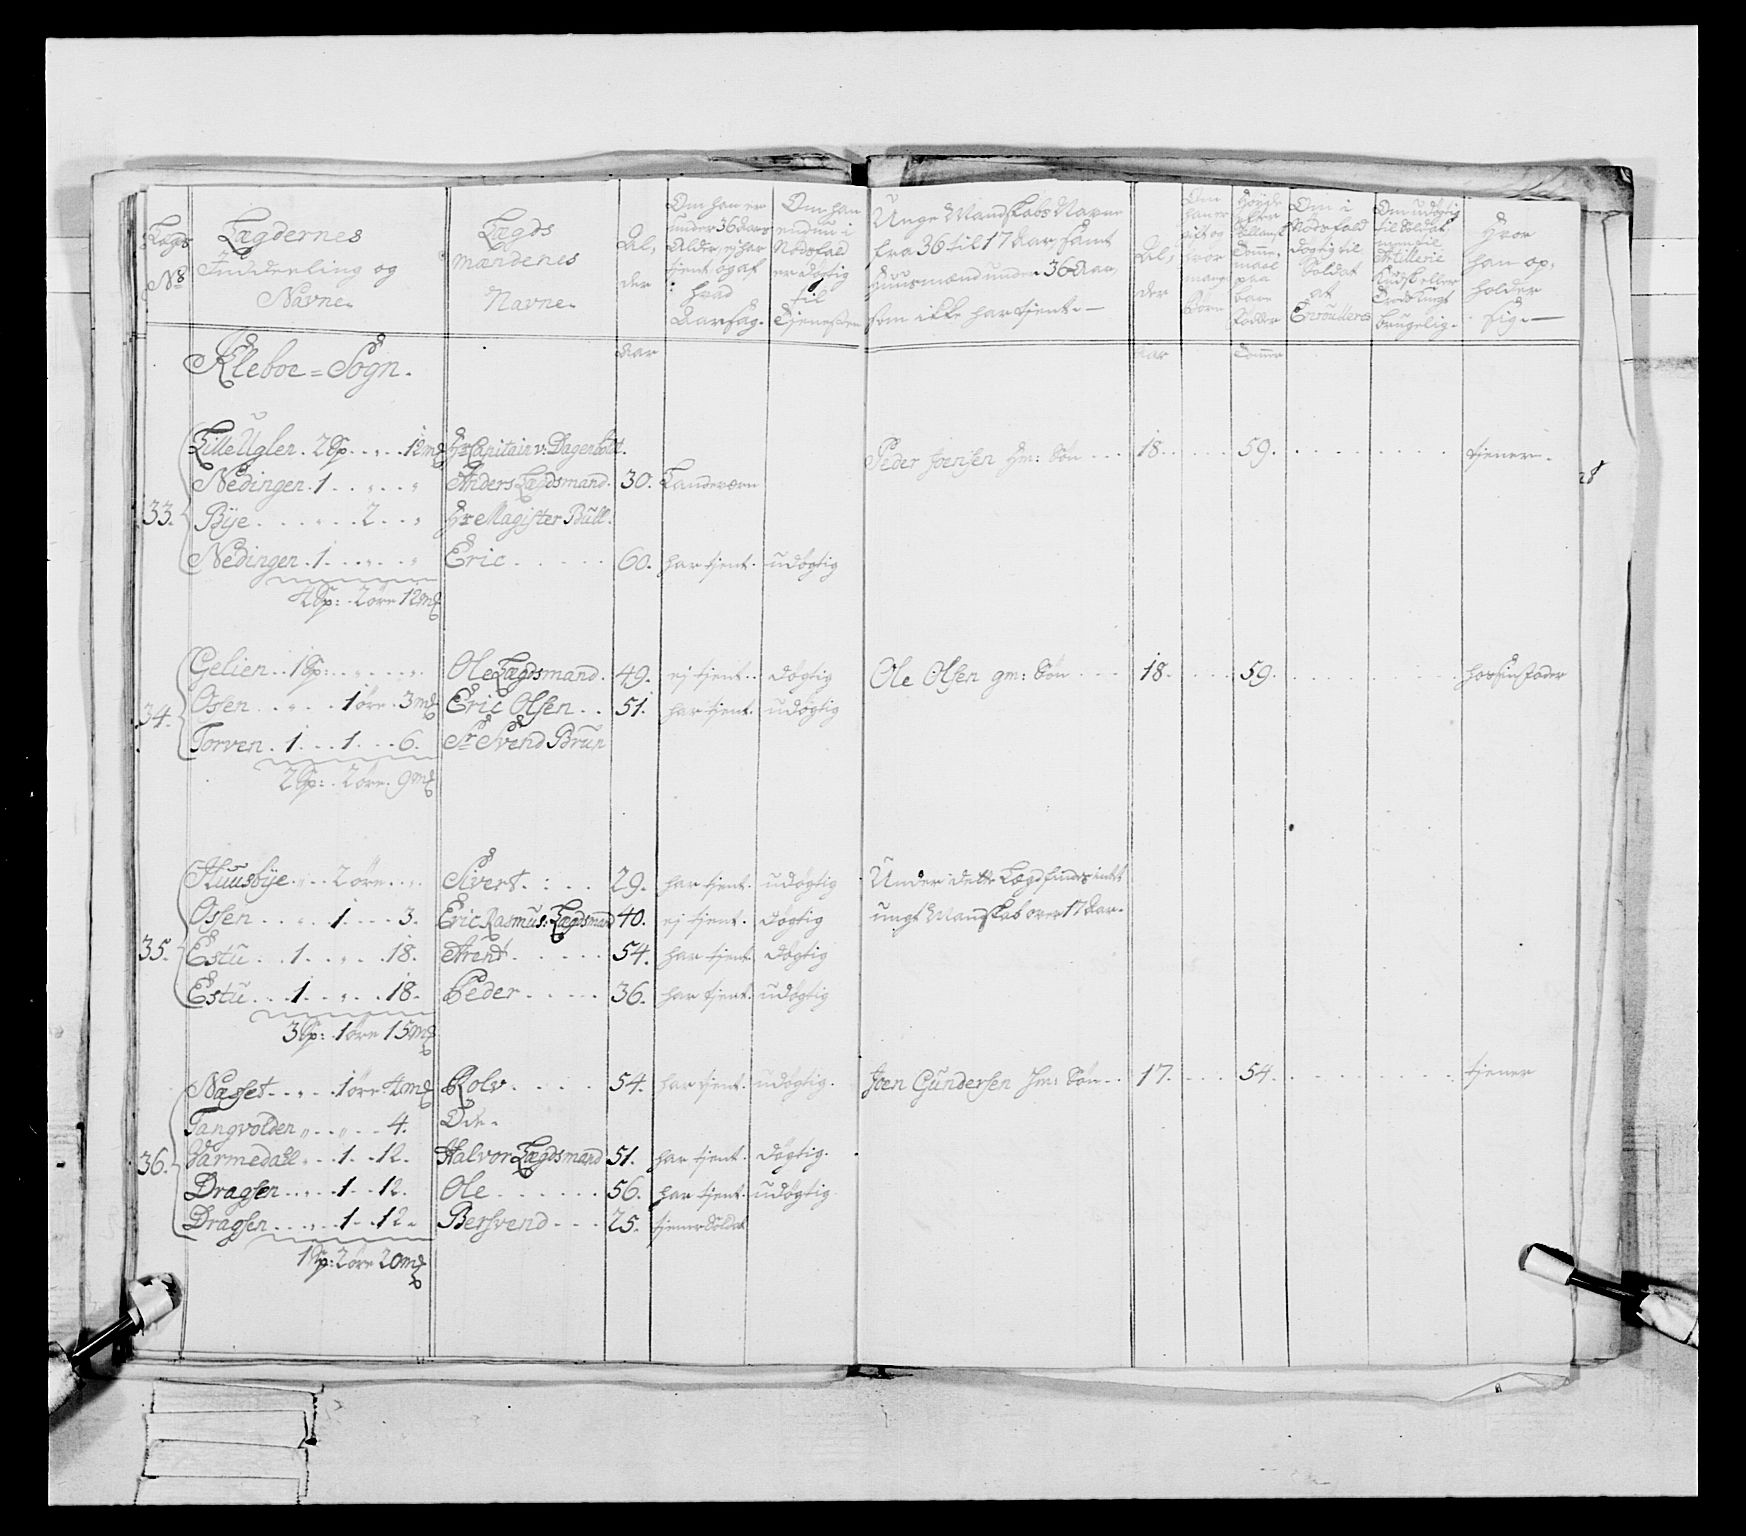 Lægds
Nº
Lægdernes
Inddeeling og
Navne.
Lægds
mændenes
Navne.
Al,
der
Om han er
under 36 Aars
Alder, ej har
tjent og af
hvad
Aarsag.
Om han
endnu i
Nødsfald
er udøgtig
til
Tjenesten
Unge Mandskabs Navne
fra 36 til 17 Aar, samt
Huusmænd under 36 Aar,
som ikke har tjent.
Al,
der
Om
han er
gift og
hvor
mange
Børn
Høyde
efter
paa
bare
Fødder
Om i
Nødsfald
døgtig til
Soldat
at
Enroullere
Om udøgtig
til Soldat
Artillerie
Kudsk eller
brugelig.
Hvor
han op,
holder
sig.
Klebøe = Sogn.
Aar
Aar
Tomme
33.
Lille Uglen . 2 Sp. . „ . 12 mk Hr Capitain v: Dagenbolt. Peder Joensen Hm: Søn . . . 18. . . . . 59. . . . . . . tjener.
Nedingen . 1 . . „ . . „ Anders Lægdsmand . 30. Landeværn
Bÿe . . . „ . . 2 . . „ Hr Magister Bull.
Nedingen . 1 . . „ . . „ Eric . . . . . 60. har tjent. udøgtig
4 Sp: . 2 øre 12 mk
34.
Gelien . . 1 Sp: . . „ . . „ Ole Lægdsmand . 49. ej tjent . . døgtig Ole Olsen gm: Søn . . . 18. . . . . 59. . . . . . . hos sin Fader
Osen . . „ . . 1 øre . 3 mk Eric Olsen . . 51. har tjent . udøgtig
Torven . 1 . . . 1 . . . 6. Sr Svend Brun
2 Sp: . 2 øre . 9 mk
35.
Huusbÿe . „ . . 2 øre . . „ Sivert . : . . 29. har tjent. udøgtig Under dette Lægd findes intet
Ossen . . . „ . 1 . . . 3. Eric Rasmus: Lægdsmand 40. ej tjent. døgtig ungt Mandskab over 17 Aar.
Estu . . . 1 . . „ . . 18. Arent . . . . . 54. har tjent. døgtig
Estu . . . 1 . . „ . . 18. Peder . . . . 36. har tjent. udøgtig
3 Sp: . 1 øre 15 mk
36.
Næsset . . „ . . 1 øre . 4 mk Rolv . . . . 54. har tjent. udøgtig. Joen Gundersen Hm: Søn . . 17. . . . . 54. . . . . . . tjener
Tangvolden „ . . „ . . . 4. Øde.
Varmedahl „ . . 1 . . 12. Halvor Lægdsmand 51. har tjent. døgtig.
Dragsen . . „ . . 1 . . 12. Ole . . . . . . 56. har tjent. udøgtig
Dragsen . . . „ . . 1 . . 12. Bersvend . . . 25. tjener Soldat
1 Sp: 2 øre 20 mk